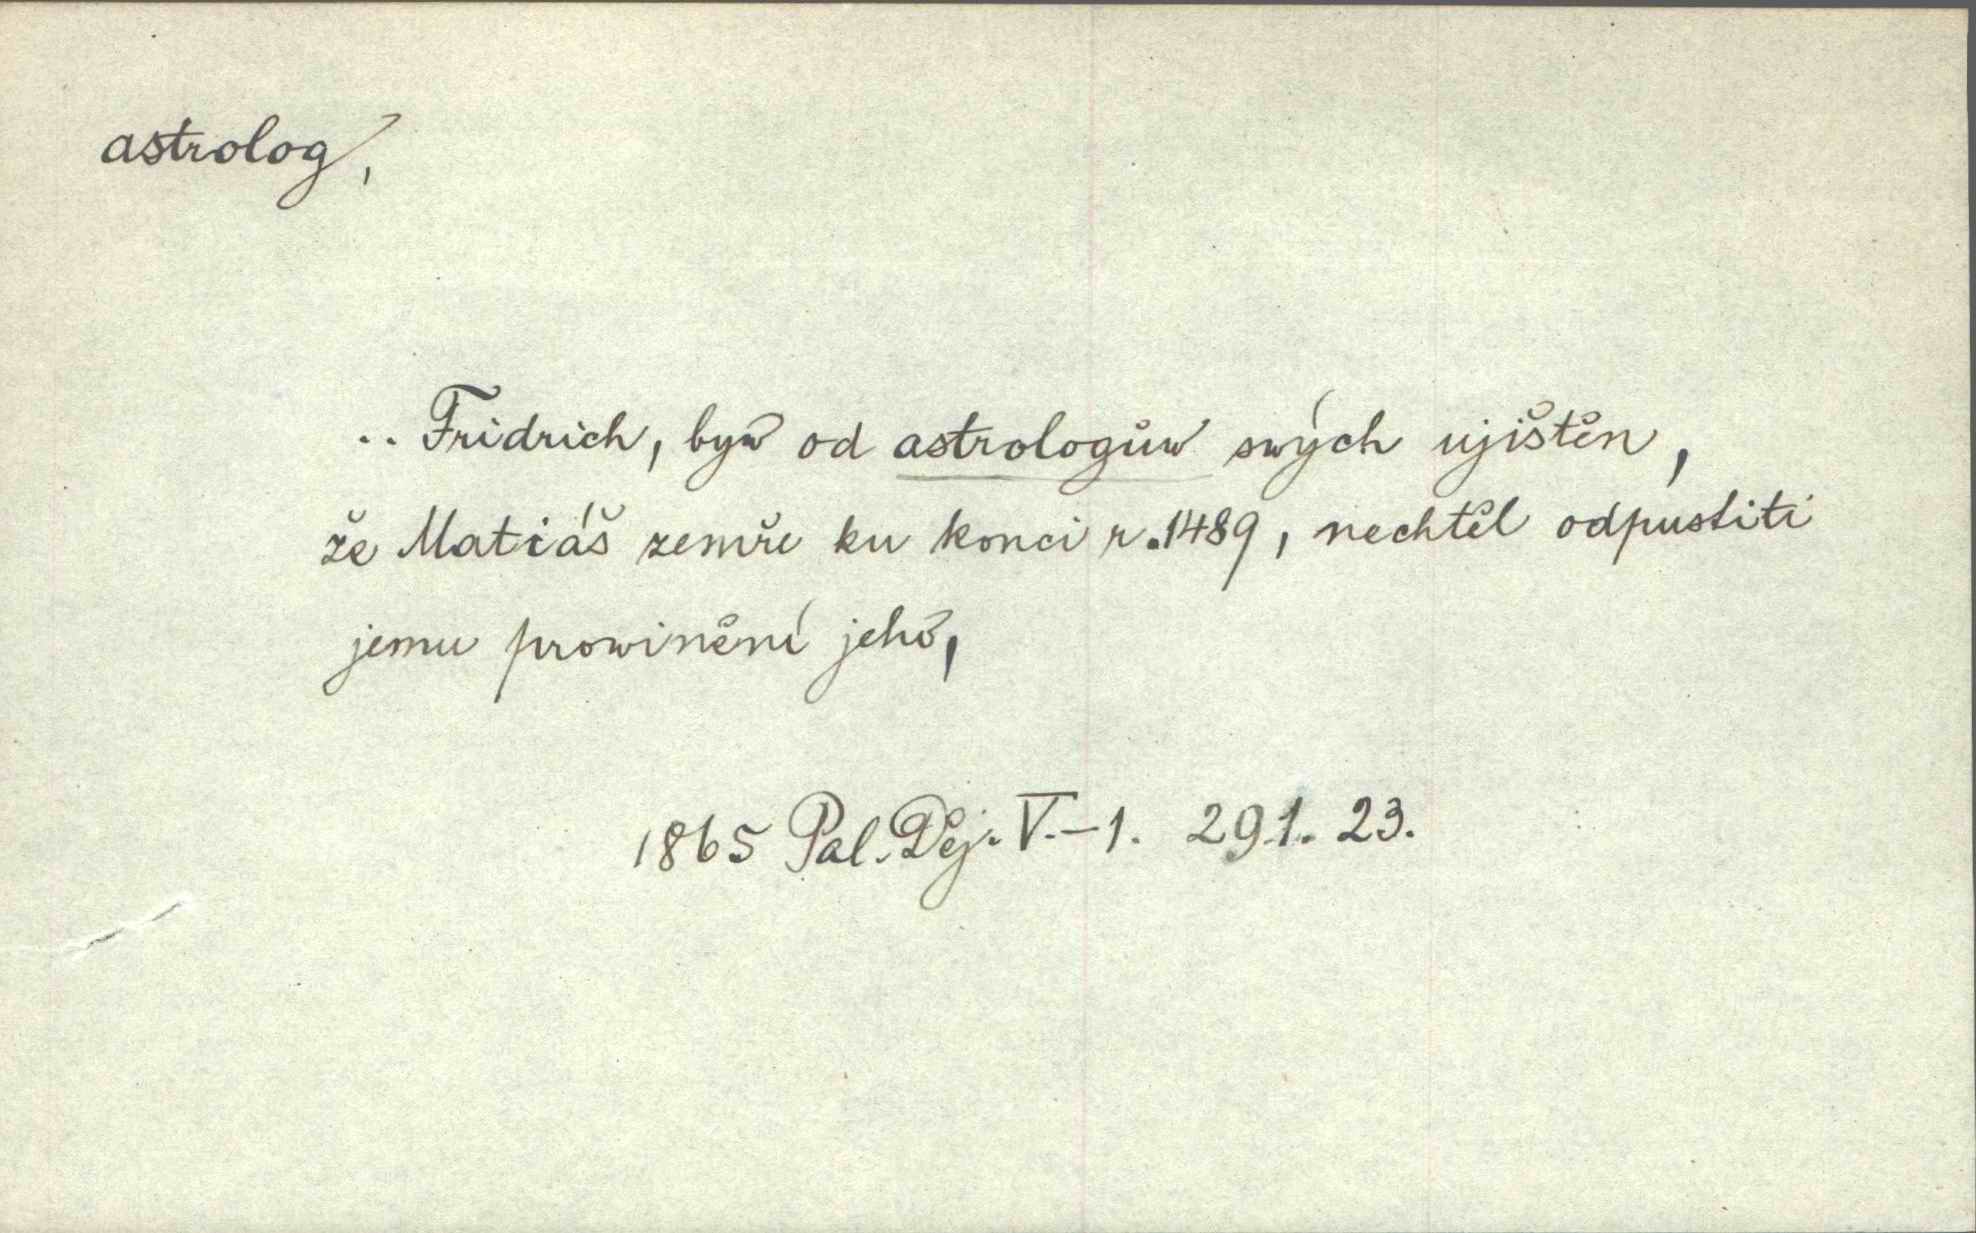 astrolog,
.. Fridrich, byw od astrologůw swých ujištěn,
že Matiáš zemře ku konci r. 1489, nechtěl odpustiti
jemu prowinění jeho,
1865 Pal. Děj. V.–1. 291. 23.